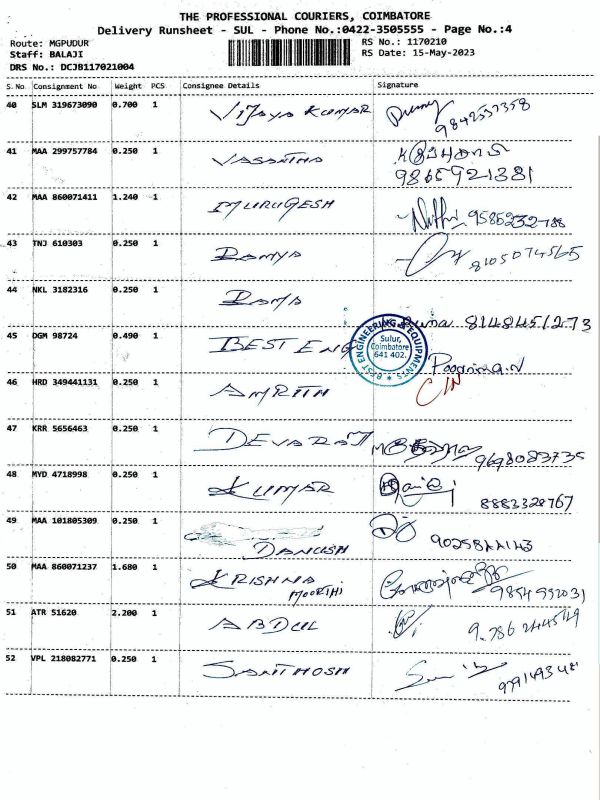 THE PROFESSIONAL COURIERS, COIMBATORE
Delivery Runsheet - SUL - Phone No.:0422-3505555 - Page No.:4
Route: MGPUDUR RS No.: 1170210
Staff: BALAJI RS Date: 15-May-2023
DRS No.: DCJB117021004
S. No Consignment No Weight PCS Consignee Details Signature
40 SLM 319673090 0.700 1 VIJAYA KUMAR
41 MAA 299757784 0.250 1 VASANTHA
42 MAA 860071411 1.240 1 MURUGESH 9585232788
43 TNJ 610303 0.250 1 RAMYA 8105074565
44 NKL 3182316 0.250 1 RAMYA 8148451273
45 DGM 98724 0.490 1 BEST ENG Poornima.N
BEST ENGINEERING & EQUIPMENTS
Sulur,
Coimbatore
641 402.
46 HRD 349441131 0.250 1 AMRITH
47 KRR 5656463 0.250 1 DEVARAJ 9698083735
48 MYD 4718998 0.250 1 KUMAR 8883320767
49 MAA 101805309 0.250 1 DANUSH
50 MAA 860071237 1.680 1 KRISHNA
MOORTHI
51 ATR 51620 2.200 1 ABDUL
52 VPL 218082771 0.250 1 SANTHOSH